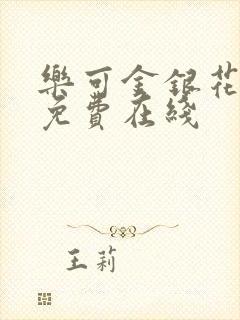 樂可金銀花
免費在綫
王莉